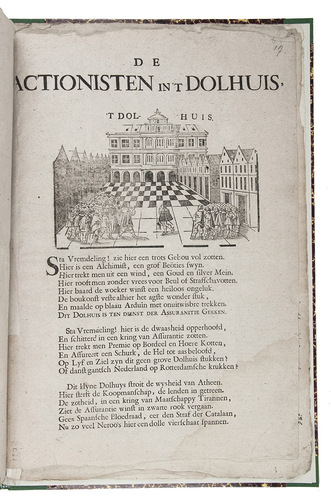 19
DE
ACTIONISTEN IN'T DOLHUIS,
'T DOL- HUIS.
Sta Vremdeling! zie hier een trots Gebou vol zotten.
Hier is een Alchimist, een grof Beöties swyn.
Hier trekt men uit een wind, een Goud en silver Mein.
Hier rooft men zonder vrees voor Beul of Straffchavotten.
Hier baard de woeker winst een heiloos ongeluk.
De boukonst veste alhier het agste wonder stuk,
En maalde op blaau Arduin met onuitwisbre trekken.
DIT DOLHUIS IS TEN DIENST DER ASSURANTIE GEKKEN.
Sta Vremdeling! hier is de dwaasheid opperhoofd,
En schitterd in een kring van Assurantie zotten.
Hier trekt men Premie op Bordeel en Hoere Kotten,
En Assureert een Schurk, de Hel tot aas beloofd,
Op Lyf en Ziel zyn dit geen grove Dolhuis stukken?
Of danst gantsch Nederland op Rotterdamsche krukken?
Dit Dolhuys stroit de wysheid van Atheen.
Hier sterkt de Koopmanschap, de lenden in getreen.
De zotheid, in een kring van Maatschappy Tirannen,
Ziet de Assurantie winst in zwarte rook vergaan.
Gees Spaansche Bloedraad, eer den Straf der Catalaan,
Nu zo veel Neroos hier een dolle vierschaar spannen.